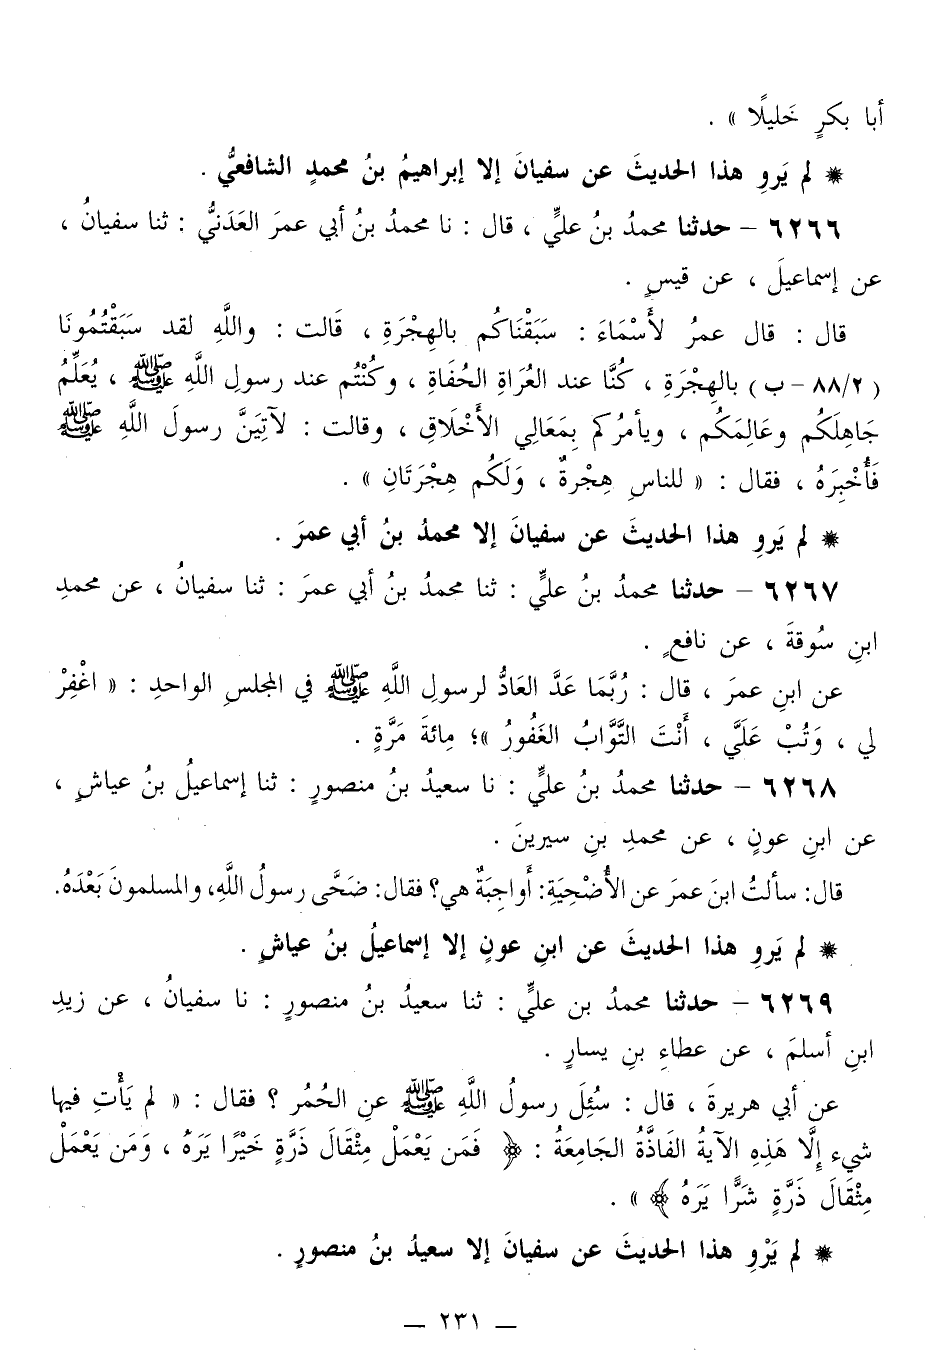 أبا بكرٍ خَليلًا » .
* لم يَروِ هذا الحديثَ عن سفيانَ إلا إبراهيمُ بنُ محمدٍ الشافعيُّ .
٦٢٦٦ – حدثنا محمدُ بنُ عليٍّ ، قال : نا محمدُ بنُ أبي عمرَ العَدَنيُّ : ثنا سفيانُ ،
عن إسماعيلَ ، عن قيسٍ .
قال : قال عمرُ لأَسْمَاءَ : سَبَقْنَاكُم بالهِجْرَةِ ، قَالت : واللَّهِ لقد سَبَقْتُمُونَا
( ٢/ ٨٨ – ب ) بالهِجْرَةِ ، كُنَّا عند العُرَاةِ الحُفَاةِ ، وكُنْتُم عند رسولِ اللَّهِ ﷺ ، يُعَلِّمُ
جَاهِلَكُم وعَالِمَكُم ، ويأمرُكم بِمَعَالِي الأَخْلَاقِ ، وقالت : لآتِيَنَّ رسولَ اللَّهِ ﷺ
فَأُخْبِرَهُ ، فقال : « للناسِ هِجْرةٌ ، وَلَكُم هِجْرَتَانِ » .
* لم يَروِ هذا الحديثَ عن سفيانَ إلا محمدُ بنُ أبي عمرَ .
٦٢٦٧ – حدثنا محمدُ بنُ عليٍّ : ثنا محمدُ بنُ أبي عمرَ : ثنا سفيانُ ، عن محمدِ
ابنِ سُوقةَ ، عن نافعٍ .
عن ابنِ عمرَ ، قال : رُبَّمَا عَدَّ العَادُّ لرسولِ اللَّهِ ﷺ في المجلسِ الواحدِ : « اغْفِرْ
لي ، وَتُبْ عَلَيَّ ، أَنْتَ التَّوَّابُ الغَفُورُ »؛ مِائةَ مَرَّةٍ .
٦٢٦٨ – حدثنا محمدُ بنُ عليٍّ : نا سعيدُ بنُ منصورٍ : ثنا إسماعيلُ بنُ عياشٍ ،
عن ابنِ عونٍ ، عن محمدِ بنِ سيرينَ .
قال: سألتُ ابنَ عمرَ عن الأُضْحِيَةِ: أَواجِبَةٌ هي؟ فقال: ضَحَّى رسولُ اللَّهِ، والمسلمونَ بَعْدَهُ.
* لم يَروِ هذا الحديثَ عن ابنِ عونٍ إلا إسماعيلُ بنُ عياشٍ .
٦٢٦٩ – حدثنا محمدُ بن عليٍّ : ثنا سعيدُ بنُ منصورٍ : نا سفيانُ ، عن زيدِ
ابنِ أسلمَ ، عن عطاءِ بنِ يسارٍ .
عن أبي هريرةَ ، قال : سُئِلَ رسولُ اللَّهِ ﷺ عنِ الحُمُرِ ؟ فقال : « لم يَأْتِ فيها
شيء إِلَّا هَذِهِ الآيةُ الفَاذَّةُ الجَامِعَةُ : ﴿ فَمَن يَعْمَلْ مِثْقَالَ ذَرَّةٍ خَيْرًا يَرَهُ ، وَمَن يَعْمَلْ
مِثْقَالَ ذَرَّةٍ شَرًّا يَرَهُ ﴾ » .
* لم يَرْوِ هذا الحديثَ عن سفيانَ إلا سعيدُ بنُ منصورٍ .
— ٢٣١ —